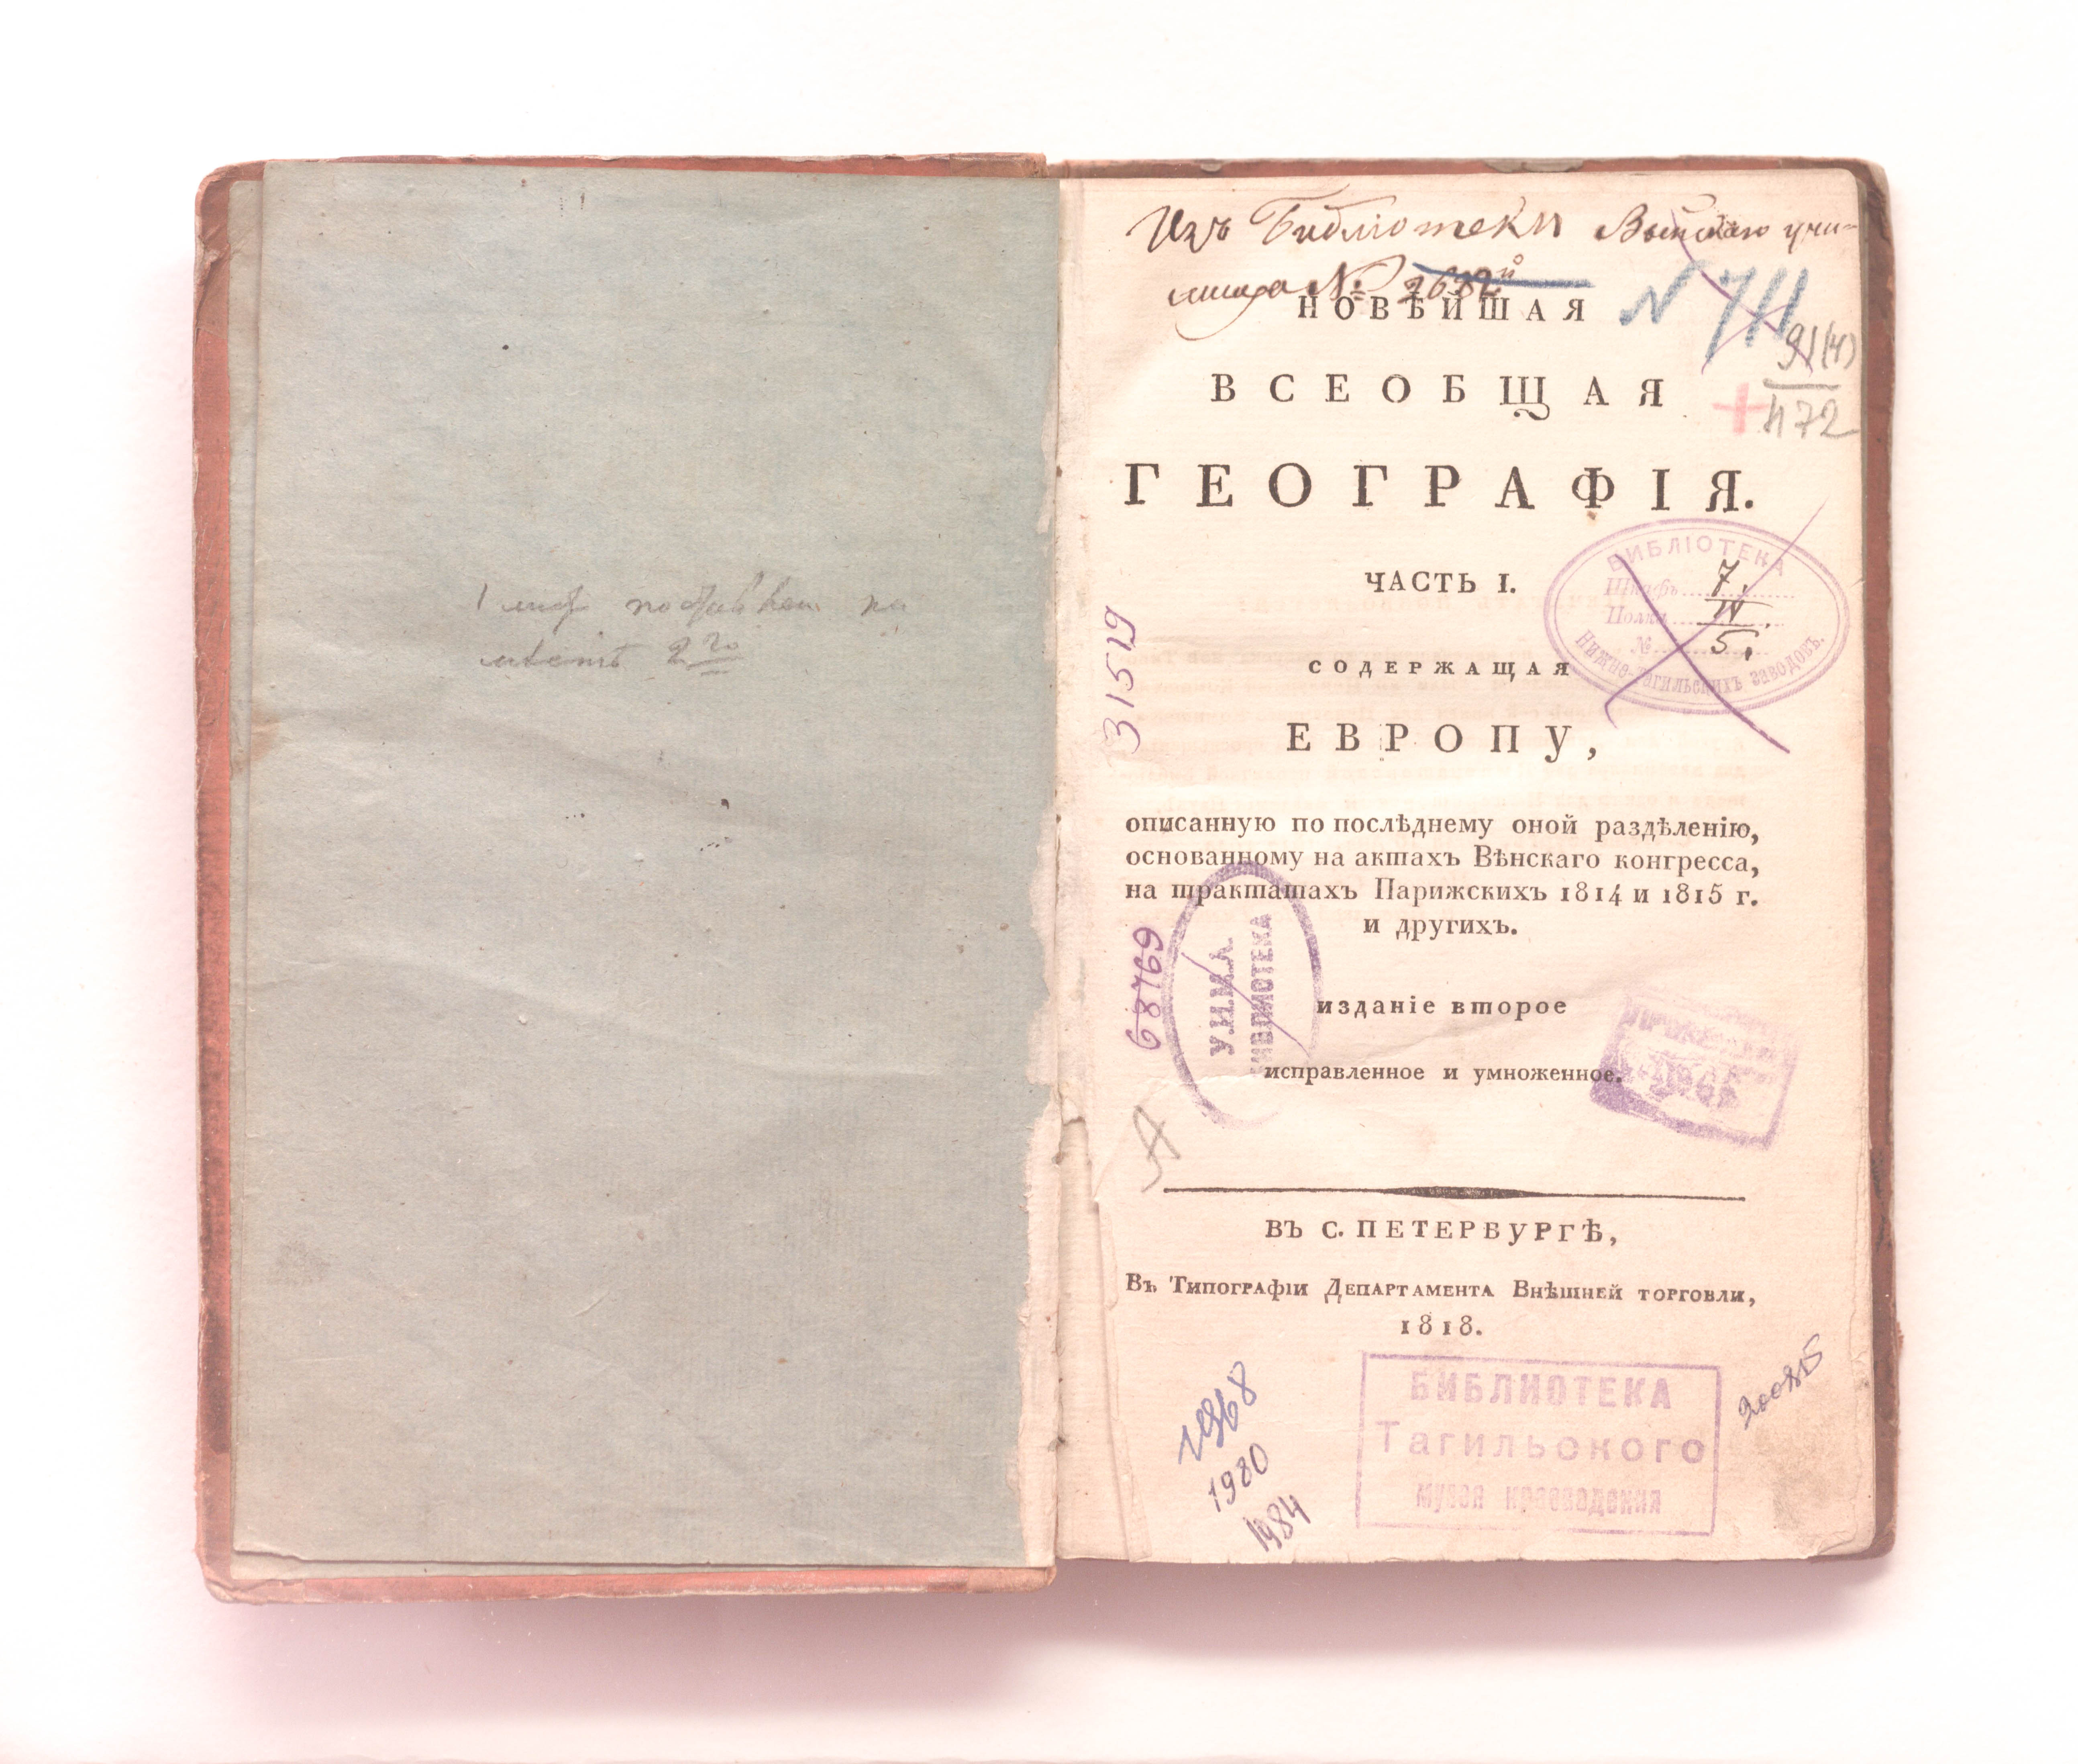 1 листъ
мѣстѣ 2го
Изъ Библіотеки Выйскаго учи-
лища № 2682й
N 711
НОВѢЙШАЯ
91(4)
Н72
ВСЕОБЩАЯ
ГЕОГРАФІЯ.
ЧАСТЬ I.
БИБЛІОТЕКА
Шкафъ 7.
Полка IV.
№ 5.
Нижне-Тагильскихъ заводовъ.
31519
СОДЕРЖАЩАЯ
ЕВРОПУ,
описанную по послѣднему оной раздѣленію,
основанному на актахъ Вѣнскаго конгресса,
на трактатахъ Парижскихъ 1814 и 1815 г.
и другихъ.
68769
БИБЛИОТЕКА
издание второе
исправленное и умноженное.
А
ВЪ С. ПЕТЕРБУРГѢ,
Въ Типографіи Департамента Внѣшней торговли,
1818.
1980
1984
БИБЛИОТЕКА
Тагильского
музея краеведения